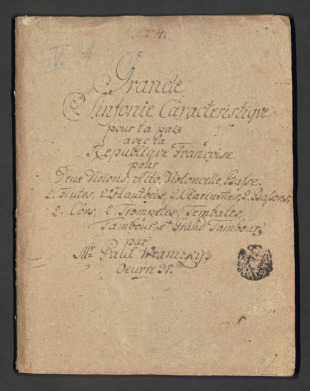 Grande
Sinfonie Caracteristique
pour la paix
avec la
Republique Françoise
pour
Deux Violons, Alto, Violoncelle, Basse
2. Flutes, 2. Hautbois, 2. Clarinettes, 2. Bassons,
2. Cors, 2. Trompettes, Tembales,
Tambour, et Grand Tambour,
par
Mr. Paul Wranizky
Oeuvre 31.